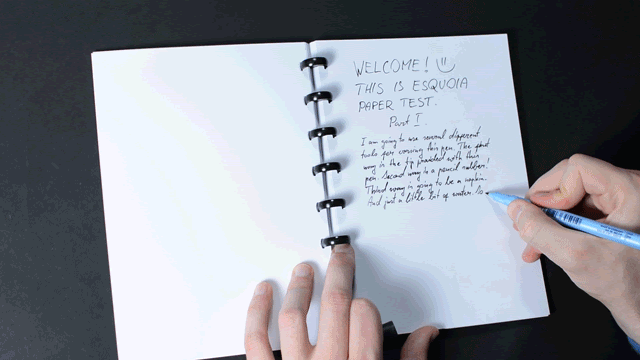 WELCOME! 
THIS IS ESQUOIA
PAPER TEST.
Part I.
I am going to use several different
tools for erasing this pen. The first
way is the tip provided with this
pen. Second way is a pencil rubber!
Third way is going to be a napkin.
And just a little bit of water.